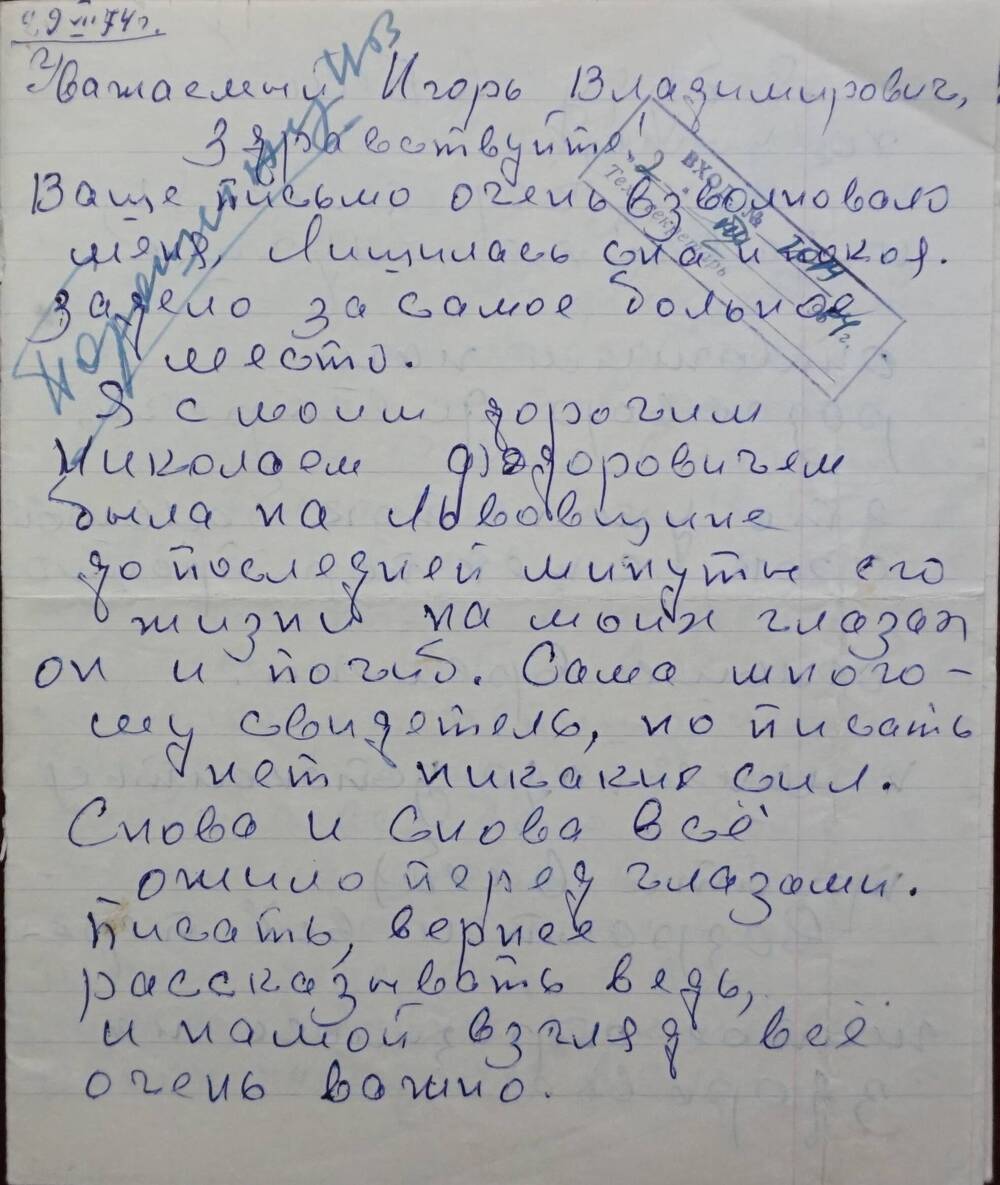 29 VII 74 г.
Уважаемый Игорь Владимирович,
Здравствуйте!
Ваше письмо очень взволновало
меня, Лишилась сна и покоя.
Задело за самое больное
место.
Я с моим дорогим
Николаем Фёдоровичем
была на Львовщине
до последней минуты его
жизни на моих глазах
он и погиб. Сама много-
му свидетель, но писать
нет никаких сил.
Снова и снова всё
ожило перед глазами.
Писать, вернее
рассказывать ведь,
и на мой взгляд всё
очень важно.
ВХОД №
"2"